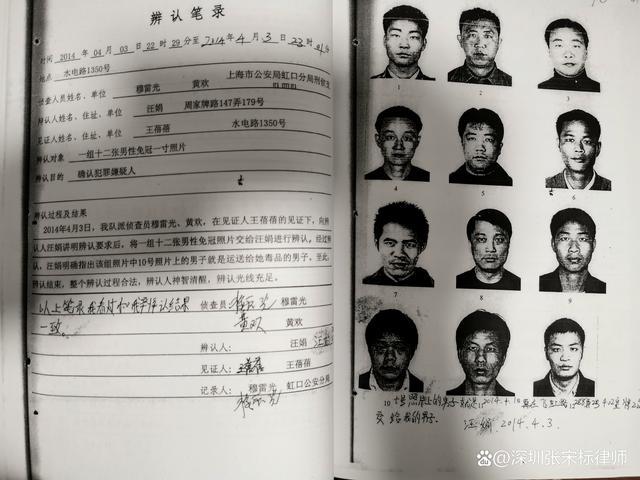 辨认笔录
时间 2014 年 04 月 03 日 22 时 29 分至 2014年4月3日23时
地点 水电路1350号
侦查人员姓名、单位 穆雷光 黄欢 上海市公安局虹口分局刑侦支
辨认人姓名、住址、单位 汪娟 周家牌路147弄179号
见证人姓名、住址、单位 王蓓蓓 水电路1350号
辨认对象 一组十二张男性免冠一寸照片
辨认目的 确认犯罪嫌疑人
辨认过程及结果
2014年4月3日，我队派侦查员穆雷光、黄欢，在见证人王蓓蓓的见证下，向辨
认人汪娟讲明辨认要求后，将一组十二张男性免冠照片交给汪娟进行辨认。经过辨
认，汪娟明确指出该组照片中10号照片上的男子就是运送给她毒品的男子。至此，
辨认结束，整个辨认过程合法，辨认人神智清醒，辨认光线充足。
以上笔录我看过和 辨认结果 侦查员： 穆雷光
一致。 黄欢 黄欢
辨认人： 汪娟
见证人： 王蓓蓓 王蓓蓓
记录人： 穆雷光 虹口公安分局
1 2 3
4 5 6
7 8 9
10 照片上的男子就是 2014.4.1
交给我的男子。 汪娟 2014.4.3.
@深圳张宋标律师